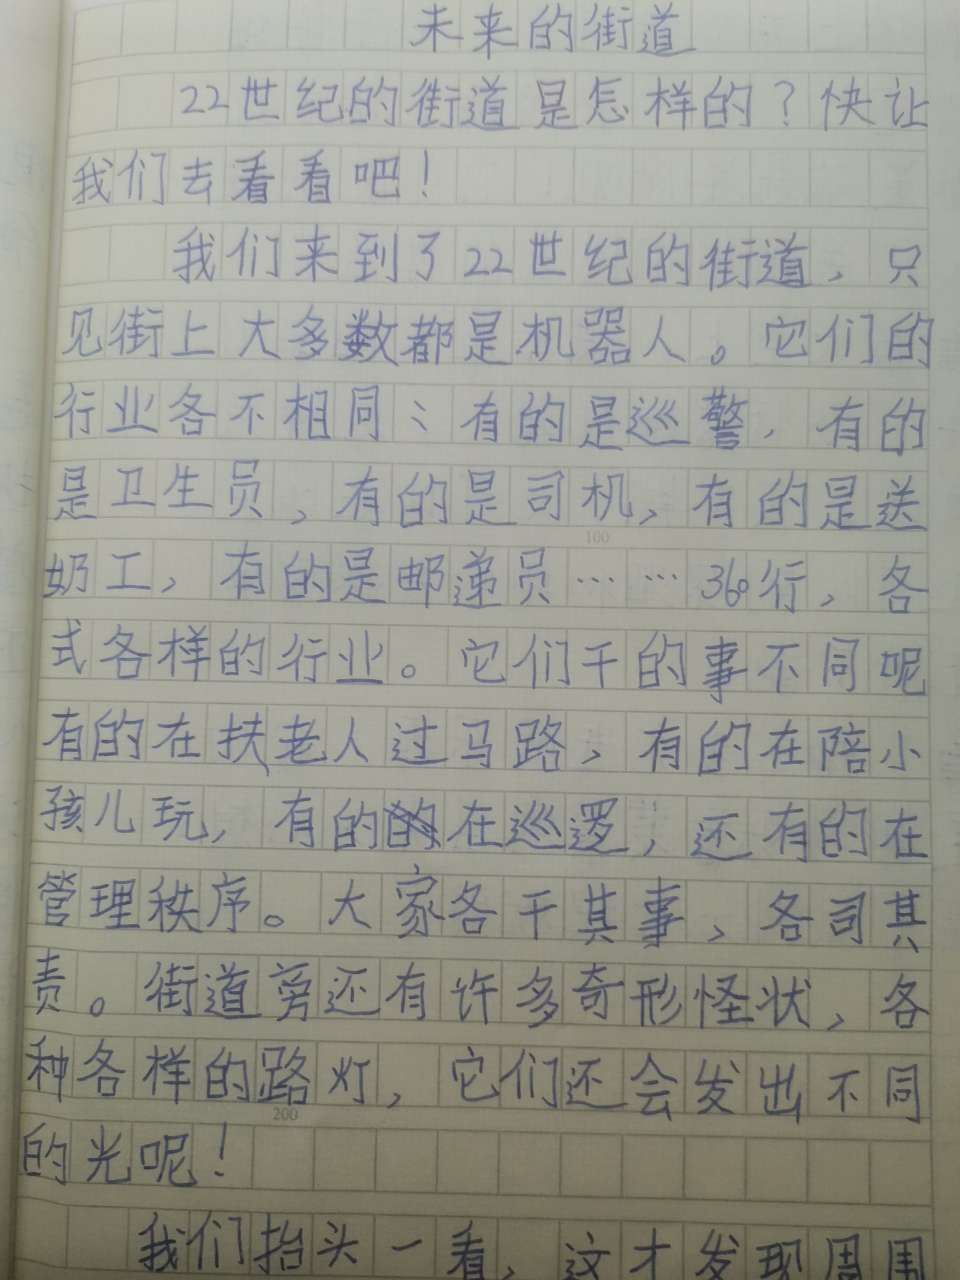 未来的街道
22世纪的街道是怎样的？快让
我们去看看吧！
我们来到了22世纪的街道，只
见街上大多数都是机器人。它们的
行业各不相同：有的是巡警，有的
是卫生员，有的是司机，有的是送
奶工，有的是邮递员……360行，各
式各样的行业。它们干的事不同呢
有的在扶老人过马路，有的在陪小
孩儿玩，有的在巡逻，还有的在
100
管理秩序。大家各干其事，各司其
责。街道旁还有许多奇形怪状，各
种各样的路灯，它们还会发出不同
200
的光呢！
我们抬头一看，这才发现周围